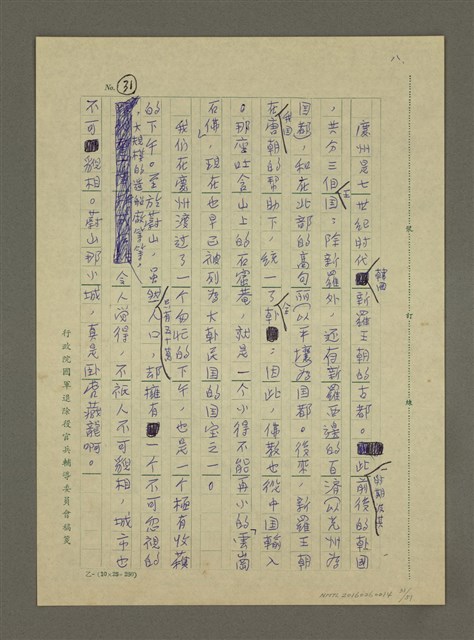 八.
No. 31
慶州是七世紀時代韓国新羅王朝的古都。此時期及其前後的韓国
,共分三個王国:除新羅外,还有新羅西邊的百済以光州為
国都,和在北部的高句丽以平壤為国都。後來,新羅王朝
在我国唐朝的帮助下,統一了全韓;因此,佛教也從中国輸入
。那座吐含山上的石窟庵,就是一个小得不能再小的「雲崗
石佛」,現在也早已被列為大韓民国的国宝之一。
我们在慶州渡过了一个匆忙的下午,也是一个極有收穫
的下午。至於蔚山,虽然人口,却擁有一个不可忽視的
,大規模的造船廠等等,
令人覚得,不祇人不可貌相,城市也
不可貌相。蔚山那小城,真是卧虎藏龍啊。
行政院國軍退除役官兵輔導委員會稿箋
乙-(10×28=280)
裝 訂 線
NMTL20160060014
31/37